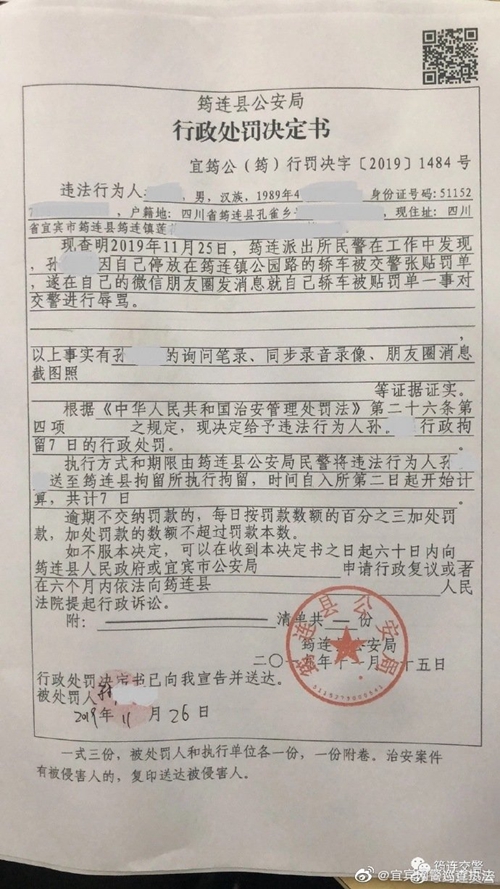 筠连县公安局
行政处罚决定书
宜筠公（筠）行罚决字〔2019〕1484号
违法行为人，男，汉族，1989年4 身份证号码：51152
，户籍地：四川省筠连县孔雀乡 现住址：四川
省宜宾市筠连县筠连镇莲
现查明2019年11月25日，筠连派出所民警在工作中发现
，孙 因自己停放在筠连镇公园路的轿车被交警张贴罚单
，遂在自己的微信朋友圈发消息就自己轿车被贴罚单一事对
交警进行辱骂。
以上事实有孙 的询问笔录、同步录音录像、朋友圈消息
截图照
等证据证实。
根据《中华人民共和国治安管理处罚法》第二十六条第
四项 之规定，现决定给予违法行为人孙. 行政拘
留7日的行政处罚。
执行方式和期限由筠连县公安局民警将违法行为人孙
送至筠连县拘留所执行拘留，时间自入所第二日起开始计
算，共计7日
逾期不交纳罚款的，每日按罚款数额的百分之三加处罚
款，加处罚款的数额不超过罚款本数。
如不服本决定，可以在收到本决定书之日起六十日内向
筠连县人民政府或宜宾市公安局 申请行政复议或者
在六个月内依法向筠连县 人民
法院提起行政诉讼。
附： 清单共 份
筠连县公安局
二〇一九年十一月二十五日
行政处罚决定书已向我宣告并送达。
被处罚人
2019年11月26日
一式三份，被处罚人和执行单位各一份，一份附卷。治安案件
有被侵害人的，复印送达被侵害人。
筠连县公安局
筠连交警